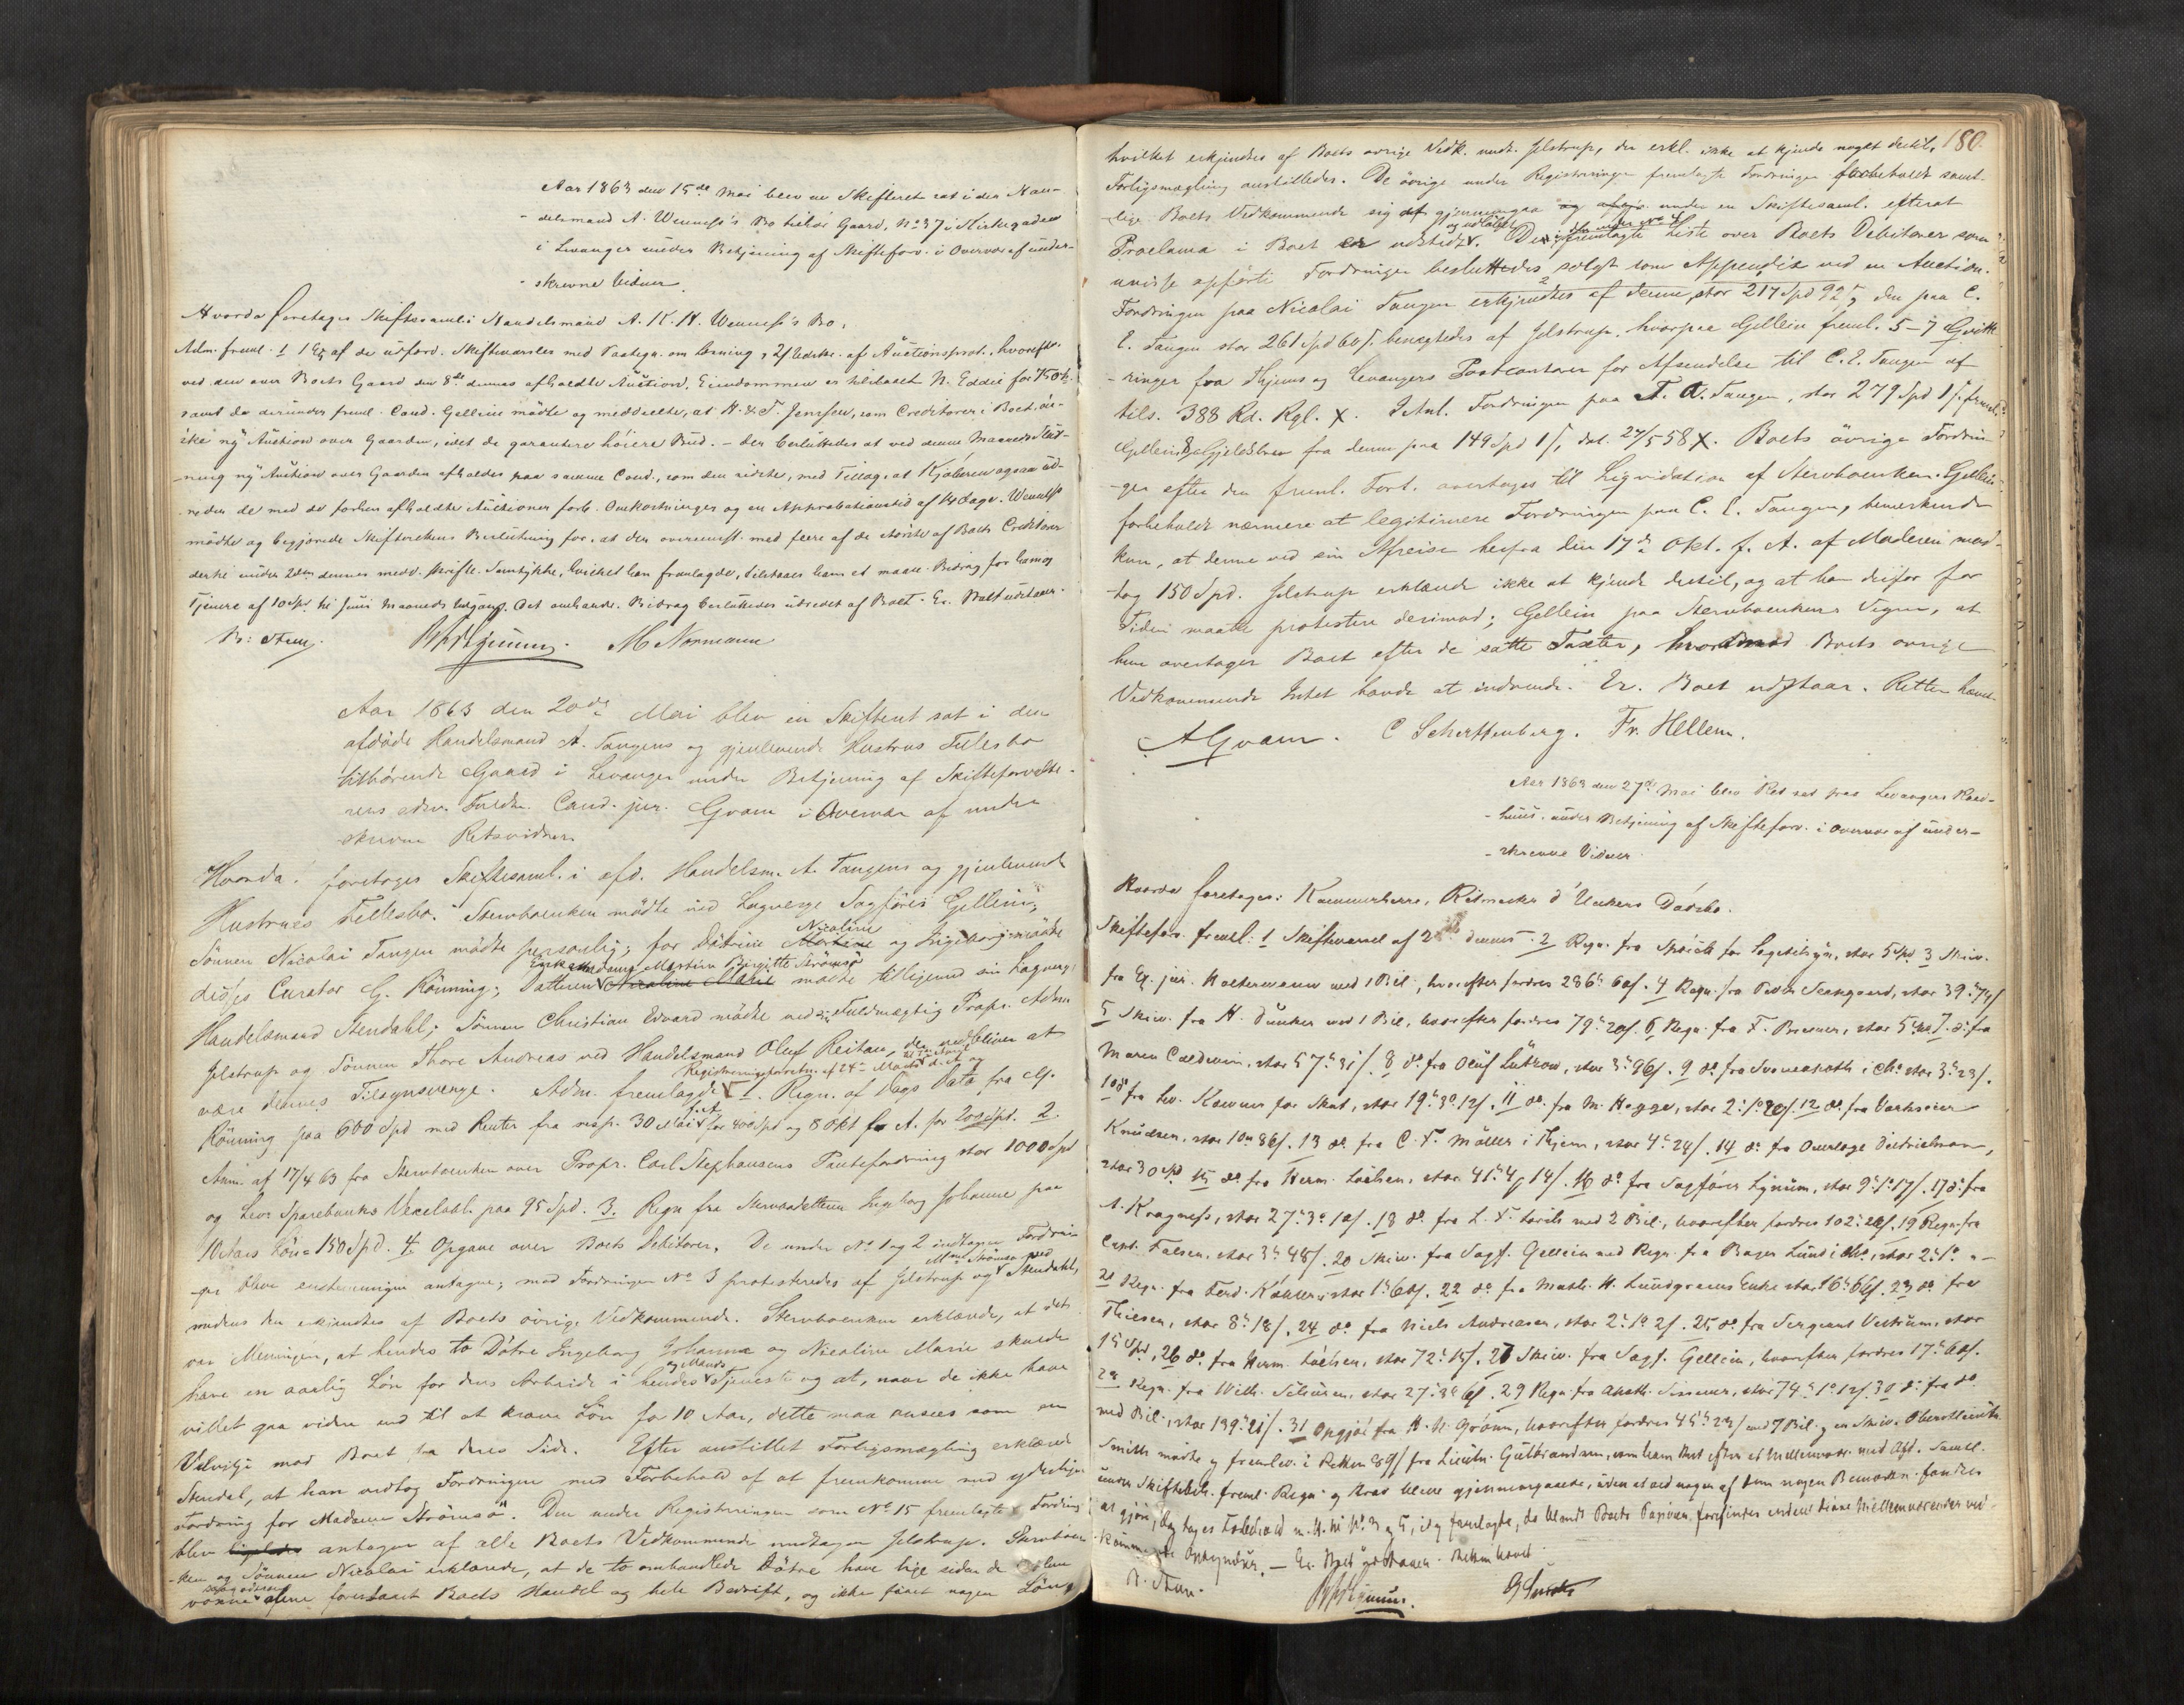 Aar 1863 den 15de Mai blev en Skifteret sat i den Han-
delsmand A. Wennefs's Bo tilhør Gaard, No 37 i Kirkegaden
i Levanger under Betjening af Skifteforv. i Overvær af under-
skrevne Vidner.
Hvorda foretages Skiftesaml. i Handelsmand A. K. H. Wennefs's Bo.
Adm. freml. 1 1 Ex af de udford. Skiftevarsler med Paategn. om læsning, 2/ Udskr. af Auctionsprot., hvorefter
ved den over Boets Gaard den 8de dennes afholdte Auction, Eiendommen er tilslaaet N. Eddie for 750
samt da derunder freml. Cand. Gellein mødte og meddeelte, at H. & F. Jenssen, som Creditorer i Boet øn-
ske ny Auction over Gaarden, idet de garantere høiere Bud. – der besluttedes at ved denne Maaneds Slut-
ning ny Auction over Gaarden afholdes paa samme Cond., som den sidste, med Tillæg, at Kjøberen ogsaa ud-
reder de med de forhen afholdte Auctioner forb. Omkostninger og en Approbationstid af 14 Dage. Wennefs
mødte og begjærede Skifterettens Beslutning for, at der overeensst. med flere af de største af Boets Creditorer
dertil under 2den dennes medd. skriftl. Samtykke, hvilket han fremlagde, tilstaaes ham et maan. Bidrag for ham og
Tjenere af 10 Spd. til Juni Maaneds Udgang. Det omhandl. Bidrag besluttedes udredet af Boet. Er. Boet udstaar.
M Normann
Aar 1863 den 20de Mai blev en Skifteret sat i den
afdøde Handelsmand A. Tangens og gjenlevende Hustrus Fællesbo
tilhørende Gaard i Levanger under Betjening af Skifteforvalte-
rens edsv. Fuldm. Cand. jur. Qvam i Overvær af under-
skrevne Retsvidner
Hvorda: foretoges Skiftesaml. i afd. Handelsm. A. Tangens og gjenlevende
Hustrues Fællesbo. Stervboenken mødte ved Lagværge Sagfører Gellein;
Sønnen Nicolai Tangen mødte personlig; for Døtrene Nicoline og Ingeborg mødte
disses Curator G. Rönning; Datteren Enkemadame Martine Birgitte Strömsö mødte tilligemed sin Lagværge
Handelsmand Stendahl; Sønnen Christian Edvard mødte ved sin Fuldmægtig Propr. Adm.
Jelstrup og Sønnen Thore Andreas ved Handelsmand Oluf Reitan, der vedbliver at
være dennes Tilsynsværge. Adm. fremlagde Registreringsforretn. af 24de Marts d. A. og 1. Regn. af Dags Dato fra G.
Rönning paa 600 Spd med Renter fra resp. 30 Mai f. A. for 400 Spd og 8 Okt f. A. for 200 Spd. 2.
Anm. af 17/4 63 fra Stervboenken over Propr. Carl Stephansens Pantefordring stor 1000 Spd
og Levs Sparebanks Vexelobl. paa 95 Spd. 3. Regn fra Stervbodatteren Ingeborg Johanne paa
10 Aars Løn = 150 Spd. 4. Opgave over Boets Debitorer. De under No 1 og 2 indtagne Fordrin-
ger bleve eenstemmigen antagne; mod Fordringen No 3 protesteredes af Jelstrup og Mad Strömsö ved Stendahl,
medens den erkjendtes af Boets øvrige Vedkommende. Stervboenken erklærede, at det
var Meningen, at hendes to Døtre Ingeborg Johanna og Nicoline Marie skulde
have en aarlig Løn for deres Arbeide i hendes og Mands Tjeneste og at, naar de ikke have
villet gaa videre end til at kræve Løn for 10 Aar, dette maa ansees som en
Velvilje mod Boet fra deres Side. Efter anstillet Forligsmægling erklærede
Stendal, at han vedtog Fordringen med Forbehold af at fremkomme med yderligere
Fordring for Madame Strömsö. Den under Registreringen som No 15 fremlagte Fordring
blev antagen af alle Boets Vedkommende undtagen Jelstrup. Stervboen-
ken og Sønnen Nicolai erklærede, at de to omhandlede Døtre have lige siden de blev
voxne alene forestaaet Boets Handel og hele Bedrift, og ikke faaet nogen Løn,
180.
hvilket erkjendtes af Boets øvrige Vedk. undt. Jelstrup, der erkl. ikke at kjende noget dertil.
Forligsmægling anstilledes. De øvrige under Registreringen fremlagte Fordringer forbeholdt samt-
lige Boets Vedkommende sig at gjennemgaa under en Skiftesaml. efterat
Proclama i Boet er udstedt og udløbet. Den under No 4 fremlagte Liste over Boets Debitorer som
uvisse opførte Fordringer besluttedes solgt som Appendix ved en Auction.
Fordringen paa Nicolai Tangen erkjendtes af denne, stor 217 Spd 92 s, den paa C.
E. Tangen stor 261 Spd 60 s. benægtedes af Jelstrup, hvorpaa Gellein freml. 5–7 Qvitte-
ringer fra Thjems og Levangers Postcontoir for Afsendelse til C. E. Tangen af
tils. 388 Rd. Rgl. X. I Anl. Fordringen paa T. A. Tangen, stor 279 Spd 1 s. freml.
Gellein 8 Gjeldsbrev fra denne paa 149 Spd 1 s, dat. 24/5 58 X. Boets øvrige Fordrin-
ger efter den freml. Fort. overtoges til Liqvidation af Stervboenken. Gellein
forbeholdt nærmere at legitimere Fordringen paa C. E. Tangen, bemærkende
kun, at denne ved sin Afreise herfra den 17de Okt. f. A. af Moderen mod-
tog 150 Spd. Jelstrup erklærede ikke at kjende dertil, og at han derfor for
Tiden maatte protestere derimod; Gellein paa Stervboenkens Vegne, at
hun overtager Boet efter de satte Taxter, hvorimod Boets øvrige
Vedkommende Intet havde at indvende. Er. Boet udstaar. Retten hævet
A Qvam. C Scherffenberg. Fr. Hellem.
Aar 1863 den 27de Mai blev Ret sat paa Levangers Raad-
huus under Betjening af Skifteforv. i Overvær af under-
skrevne Vidner.
Hvorda foretoges: Kammerherre, Ritmester d'Unkers Dødsbo.
Skifteforv. freml: 1 Skiftevarsel af 2 dennes. 2 Regn. fra for Lægetilsyn, stor 5 Spd. 3 Skriv.
fra Ex. jur. Holtermann med 1 Bil., hvorefter fordres 286 60 s. 4 Regn. fra Peder, stor 39 74 s
5 Skriv. fra H. Dunker med 1 Bil., hvorefter fordres 79 20 s. 6 Regn. fra F. Brenner, stor 5 7 do fra
Maren Caldevin, stor 57 31 s. 8 do fra Oluf Lutzow, stor 3 96 s. 9 do fra i Chr. stor 3 23 s.
10 do fra Lev. Kæmner for Skat, stor 19 3 12 s. 11 do fra M. Hegge, stor 2 1 20 s. 12 do fra
Knudsen, stor 10 86 s. 13 do fra C. F. Möller i Thjem, stor 4 24 s. 14 do fra Overlæge Diedrichson,
stor 30 Spd. 15 do fra Herm. Löchen, stor 41 4 14 s. 16 do fra Sagfører Lynum, stor 9 1 17 s. 17 do fra
A. Kragness, stor 27 3 10 s. 18 do fra L. F. med 2 Bil., hvorefter fordres 102 28 s. 19 Regn. fra
Capt. Falsen, stor 3 48 s. 20 Skriv. fra Sagf. Gellein med Regn. fra Bager Lund i Chr., stor 2 1
21 Regn. fra Ferd. stor 1 60 s. 22 do fra H. Lundgreens Enke stor 16 66 s. 23 do fra
Thiesen, stor 8 18 s. 24 do fra Niels Andreasen, stor 2 1 2 s. 25 do fra Sergeant, stor
15 Spd, 26 do fra Herm. Löchen, stor 72 15 s. 27 Skriv. fra Sagf. Gellein, hvorefter fordres 17 60 s.
28 Regn. fra Wilh., stor 27 3 6 s. 29 Regn. fra Apoth., stor 74 1 12 s. 30 do fra do
med Bil., stor 139 21 s. 31 Opgjør fra H. H. Grönn, hvorefter fordres 45 23 s med 7 Bil. og en Skriv. Oberstlieutn.
Smith mødte og fremlev. i Retten 89 s fra Lieutn. Gulbrandsen, som ham efter et Mellemvær. med Afd. Samtl.
under Skiftebeh. freml. Regn. og Krav bleve gjennemgaaede, uden at ved nogen af dem nogen Bemærkn. fandtes
at gjøre, dog toges Forbehold m. H. til No 3 og 5, idet fremlagte, da blandt Boets Papirer forefindes endeel disse Mellemværender ved-
kommende Oplysninger. – Er. Boet udstaaer. Retten hævet.